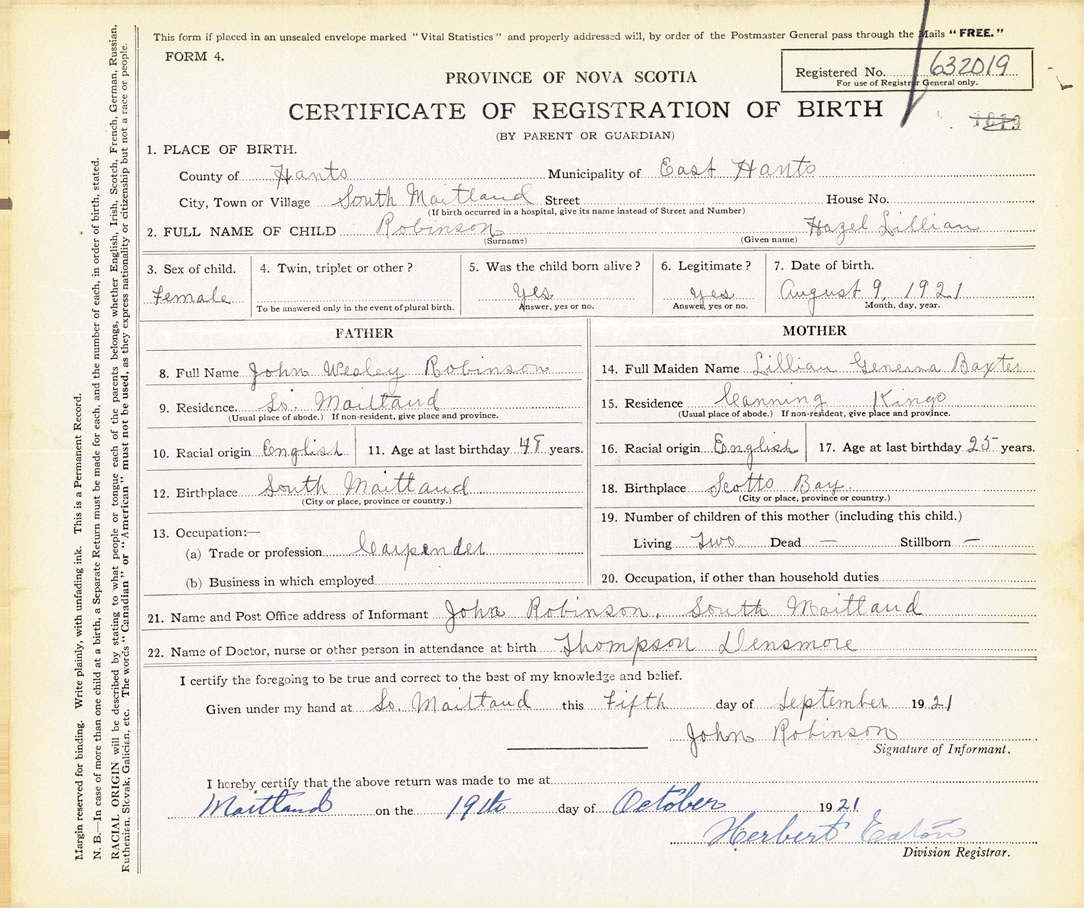 This form if placed in an unsealed envelope marked "Vital Statistics" and properly addressed will, by order of the Postmaster General pass through the Mails "FREE."
FORM 4.
Registered No. 632019
For use of Registrar General only.
PROVINCE OF NOVA SCOTIA
CERTIFICATE OF REGISTRATION OF BIRTH
(BY PARENT OR GUARDIAN)
1. PLACE OF BIRTH.
County of Hants Municipality of East Hants
City, Town or Village South Maitland Street House No.
(If birth occurred in a hospital, give its name instead of Street and Number)
2. FULL NAME OF CHILD Robinson Hazel Lillian
(Surname) (Given name)
3. Sex of child. 4. Twin, triplet or other? 5. Was the child born alive? 6. Legitimate? 7. Date of birth.
Female Yes Yes August 9, 1921
To be answered only in the event of plural birth. Answer, yes or no. Answer, yes or no. Month, day, year.
FATHER
8. Full Name John Wesley Robinson
9. Residence. So. Maitland
(Usual place of abode.) If non-resident, give place and province.
10. Racial origin English 11. Age at last birthday 48 years.
12. Birthplace South Maitland
(City or place, province or country.)
13. Occupation:—
(a) Trade or profession Carpender
(b) Business in which employed
MOTHER
14. Full Maiden Name Lillian Baxter
15. Residence Canning Kings
(Usual place of abode.) If non-resident, give place and province.
16. Racial origin English 17. Age at last birthday 25 years.
18. Birthplace Scotts Bay.
(City or place, province or country.)
19. Number of children of this mother (including this child.)
Living Two Dead — Stillborn —
20. Occupation, if other than household duties
21. Name and Post Office address of Informant John Robinson, South Maitland
22. Name of Doctor, nurse or other person in attendance at birth Thompson Densmore
I certify the foregoing to be true and correct to the best of my knowledge and belief.
Given under my hand at So. Maitland this Fifth day of September 1921
John Robinson
Signature of Informant.
I hereby certify that the above return was made to me at
Maitland on the 19th day of October 1921
Herbert Eaton
Division Registrar.
Margin reserved for binding. Write plainly, with unfading ink. This is a Permanent Record.
N. B.—In case of more than one child at a birth, a Separate Return must be made for each, and the number of each, in order of birth, stated.
RACIAL ORIGIN will be described by stating to what people or tongue each of the parents belongs, whether English, Irish, Scotch, French, German, Russian,
Ruthenian, Slovak, Galicien, etc. The words "Canadian" or "American" must not be used, as they express nationality or citizenship but not a race or people.